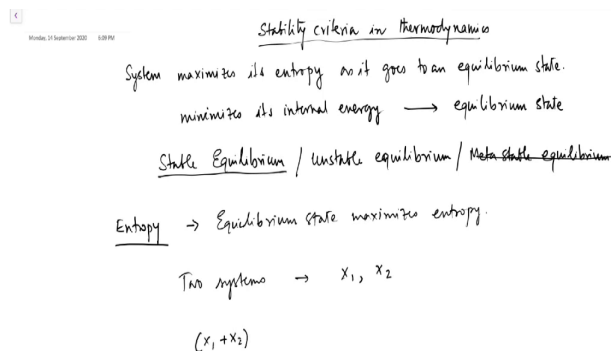 Monday, 14 September 2020 5:09 PM
Stability criteria in thermodynamics
System maximizes its entropy as it goes to an equilibrium state.
minimizes its internal energy → equilibrium state
Stable Equilibrium / unstable equilibrium / Meta stable equilibrium
Entropy → Equilibrium state maximizes entropy.
Two systems → x₁, x₂
(x₁ + x₂)